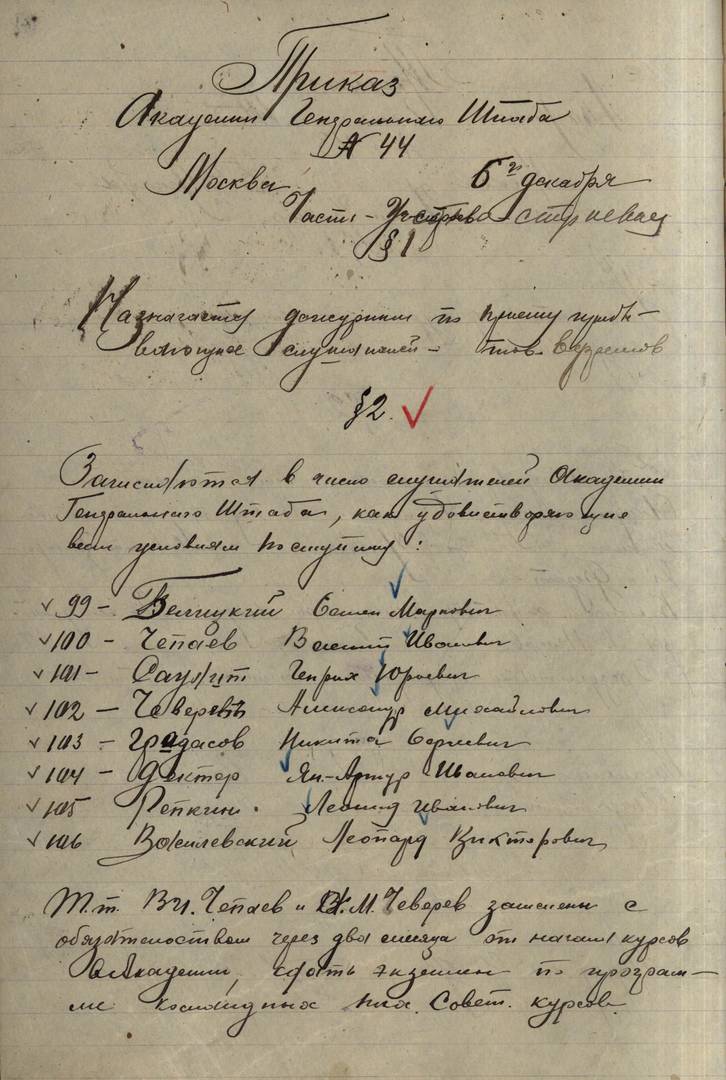 Приказ
Академии Генерального Штаба
№ 44
Москва 6го декабря
Часть
§ 1
Назначается дежурным по приему прибы-
вающих слушателей - тов.
§ 2.
Зачисляются в число слушателей Академии
Генерального Штаба, как удовлетворяющие
всем условиям поступл:
99 - Белицкий Семен Маркович
100 - Чепаев Василий Иванович
101 - Генрих Юрьевич
102 - Чеверевъ Александр Михайлович
103 - Градасов Никита Сергиевич
104 - Дектер Ян-Артур Иванович
105 Репкин. Леонид Иванович
106 Василевский Леопард Викторович
Т.т. В.И. Чепаев и А.М. Чеверев зачислены с
обязательством через два месяца от начала курсов
Академии, сдать экзамен по програм-
ме командных Совет. курсов.